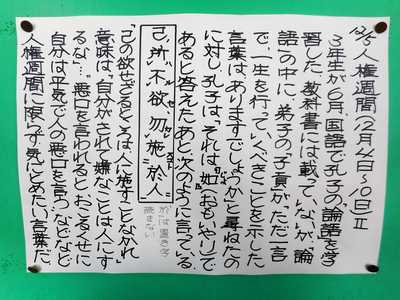 12/5 人権週間(12月4日~10日)Ⅱ
3年生が6月、国語で孔子の「論語」を学
習した。教科書には載っていないが、論
語の中に、弟子の子貢が「ただ一言
で、一生を行っていくべきことを示した
言葉はありますでしょうか」と尋ねたの
に対し、孔子は、「それは"恕(おもいやり)"で
ある」と答えたあと、次のように言っている。
己所不欲、勿施於人
於は置き字
読まない
「己の欲せざるところは人に施すことなかれ
意味は、「自分がされて嫌なことは人にす
るな」…。悪口を言われるとおこるくせに
自分は平気で人の悪口を言う」などなど
人権週間に限らず気にとめたい言葉だ。